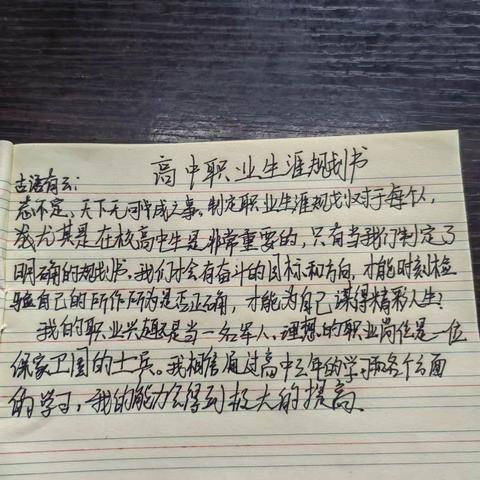 高中职业生涯规划书
古语有云:
志不定,天下无可成之事。制定职业生涯规划对于每个人,
尤其是在校高中生是非常重要的,只有当我们制定了
明确的规划书,我们才会有奋斗的目标和方向,才能时刻检
验自己的所作所为是否正确,才能为自己谋得精彩人生!
我的职业兴趣是当一名军人,理想的职业岗位是一位
保家卫国的士兵。我相信通过高中三年的学习和各个方面
的学习,我的能力会得到极大的提高.